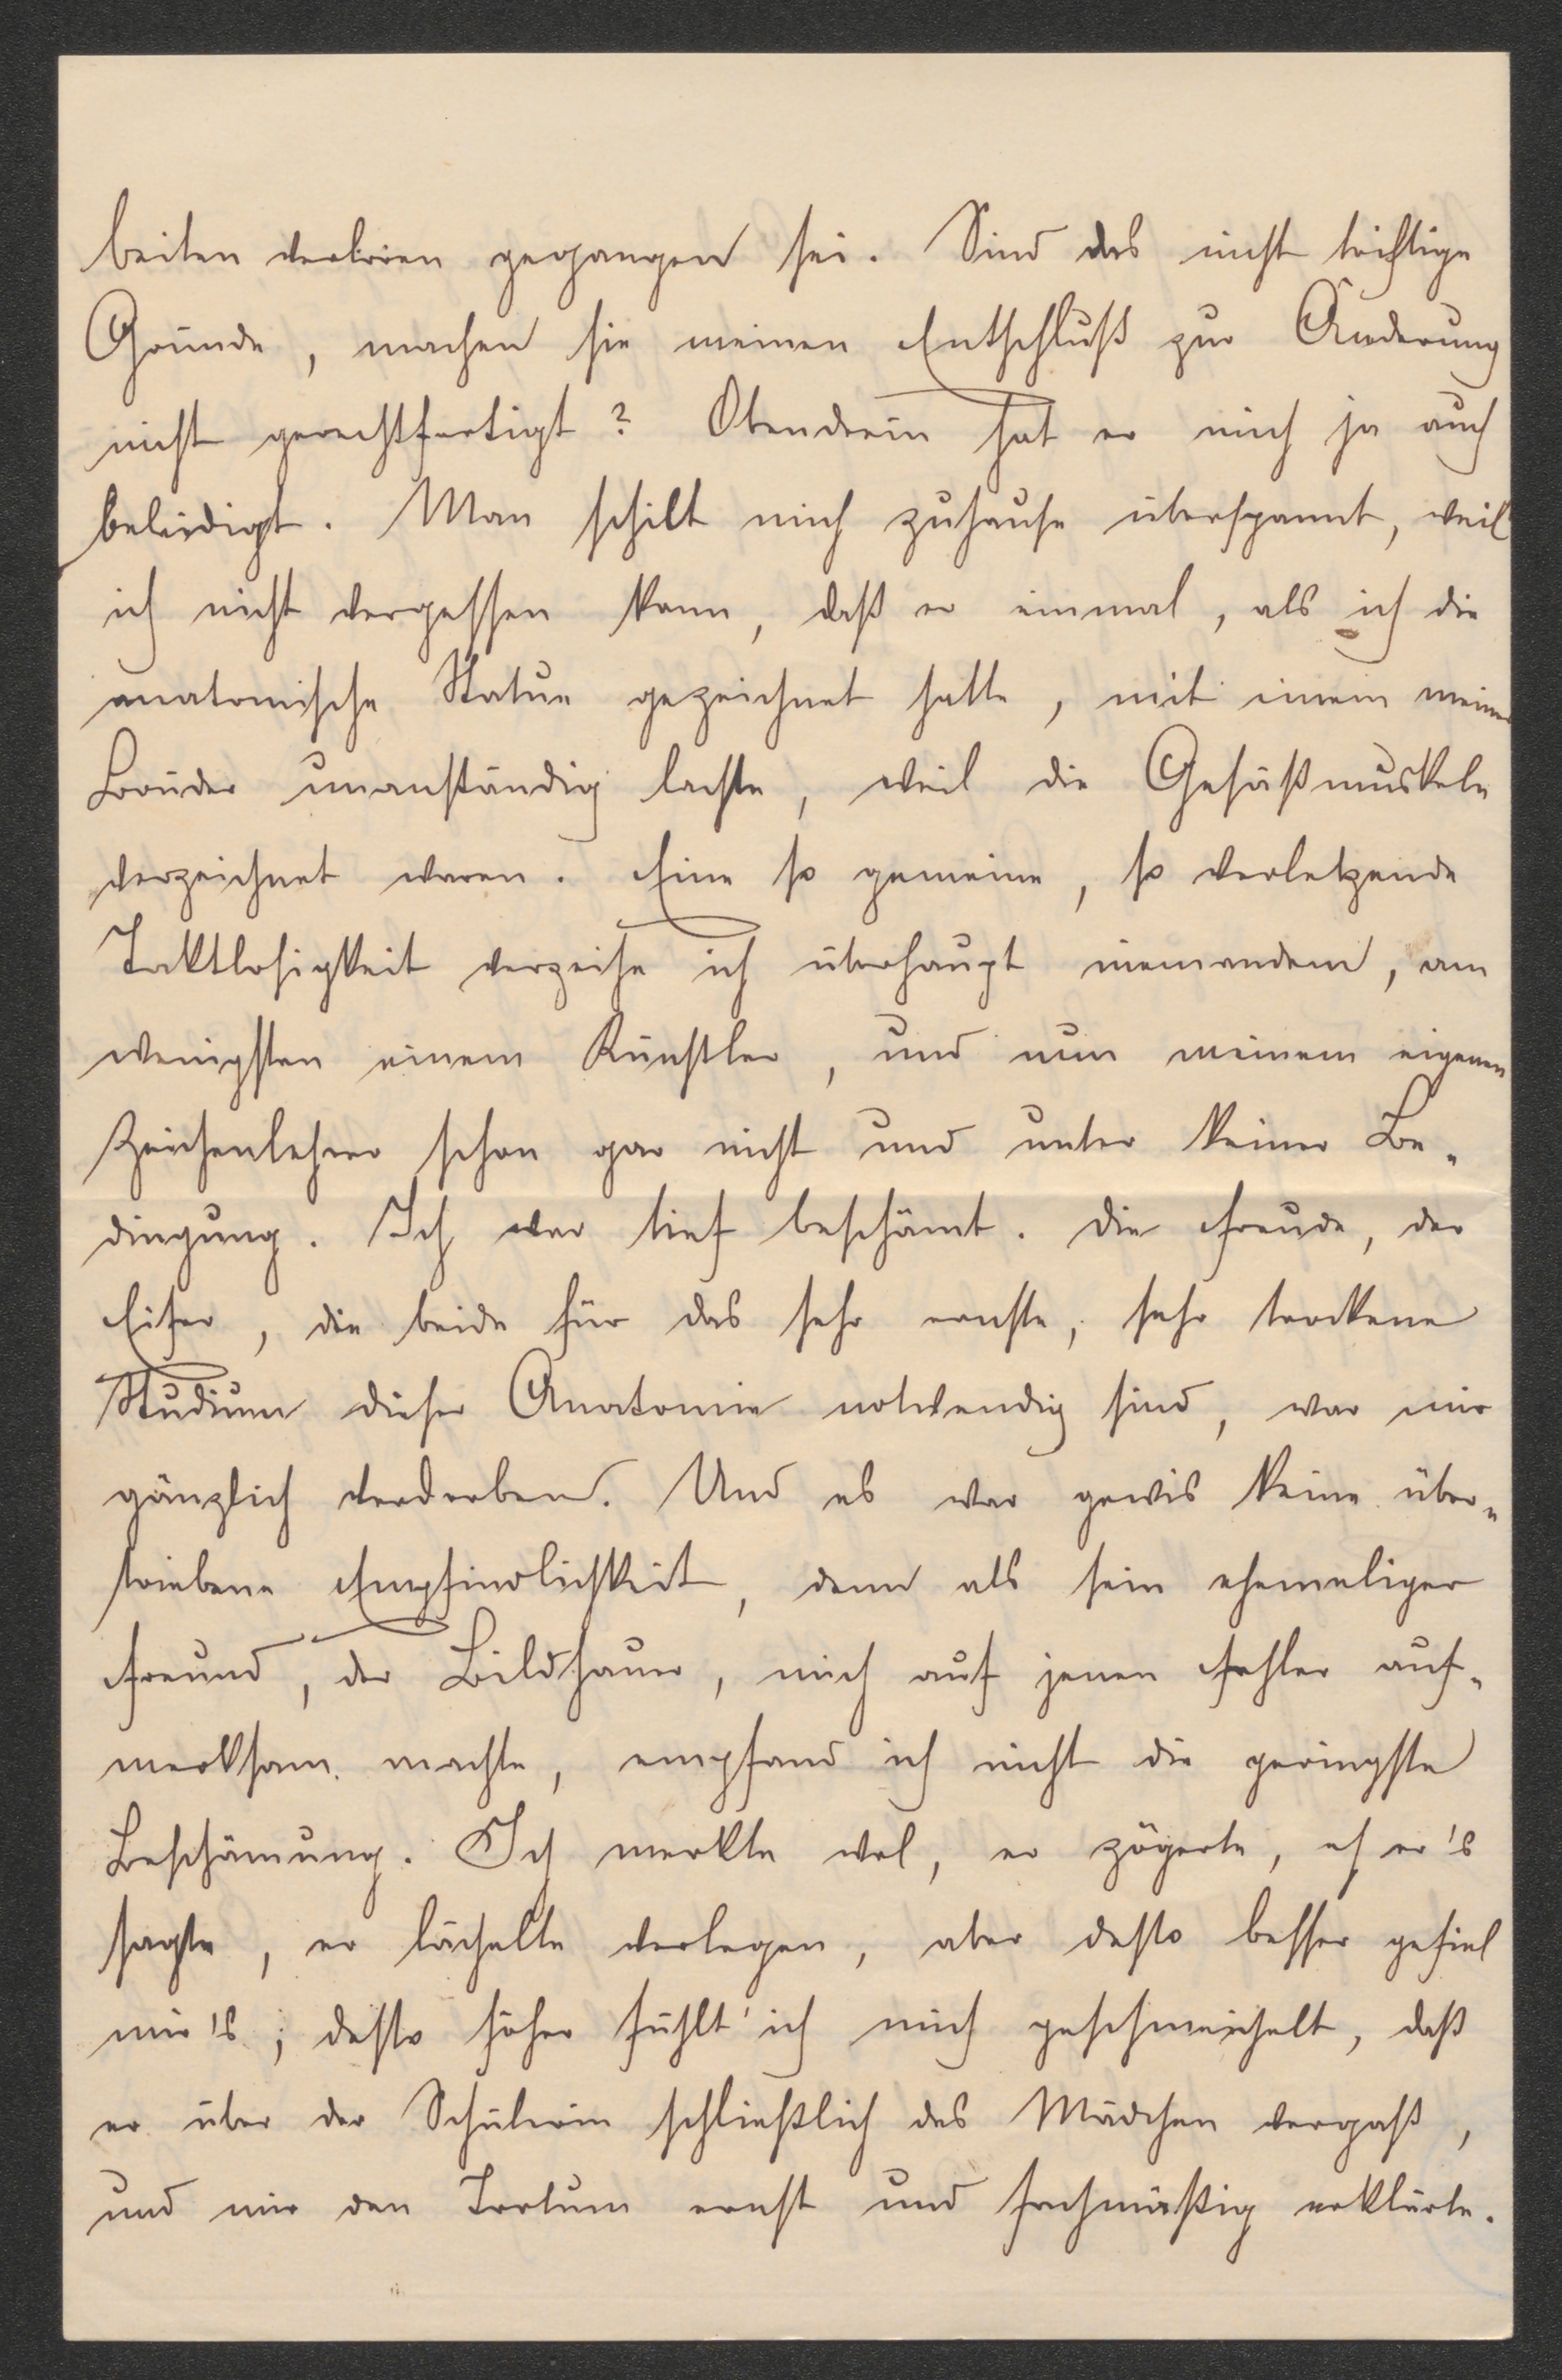 beiten verloren gegangen sei. Sind das nicht triftige
Gründe, machen sie meinen Entschluß zur Änderung
nicht gerechtfertigt? Obendrein hat er mich ja auch
beleidigt. Man schilt mich zuhause überspannt, weil
ich nicht vergessen kann, daß er einmal, als ich die
anatomische Statue gezeichnet hatte, mit einem meiner
Brüder unanständig lachte, weil die Gesäßmuskeln
verzeichnet waren. Eine so gemeine, so verletzende
Taktlosigkeit verzeihe ich überhaupt niemandem, am
wenigsten einem Künstler, und nun meinem eigenen
Zeichenlehrer schon gar nicht und unter keiner Be-
dingung. Ich war tief beschämt. Die Freude, der
Eifer, die beide für das sehr ernste, sehr trockene
Studium dieser Anatomie notwendig sind, war mir
gänzlich verdorben. Und es war gewis keine über-
triebene Empfindlichkeit, denn als sein ehemaliger
Freund, der Bildhauer, mich auf jenen Fehler auf-
merksam machte, empfand ich nicht die geringste
Beschämung. Ich merkte wol, er zögerte, eh er's
sagte, er lächelte verlegen, aber desto besser gefiel
mir's; desto höher fühlt' ich mich geschmeichelt, daß
er über der Schülerin schließlich das Mädchen vergaß,
und mir den Irrtum ernst und fachmäßig erklärte.